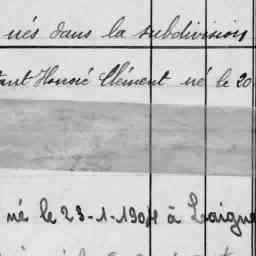 nés dans la subdivision
Honoré Clément né le 20
né le 23-1-1904 à Laigne